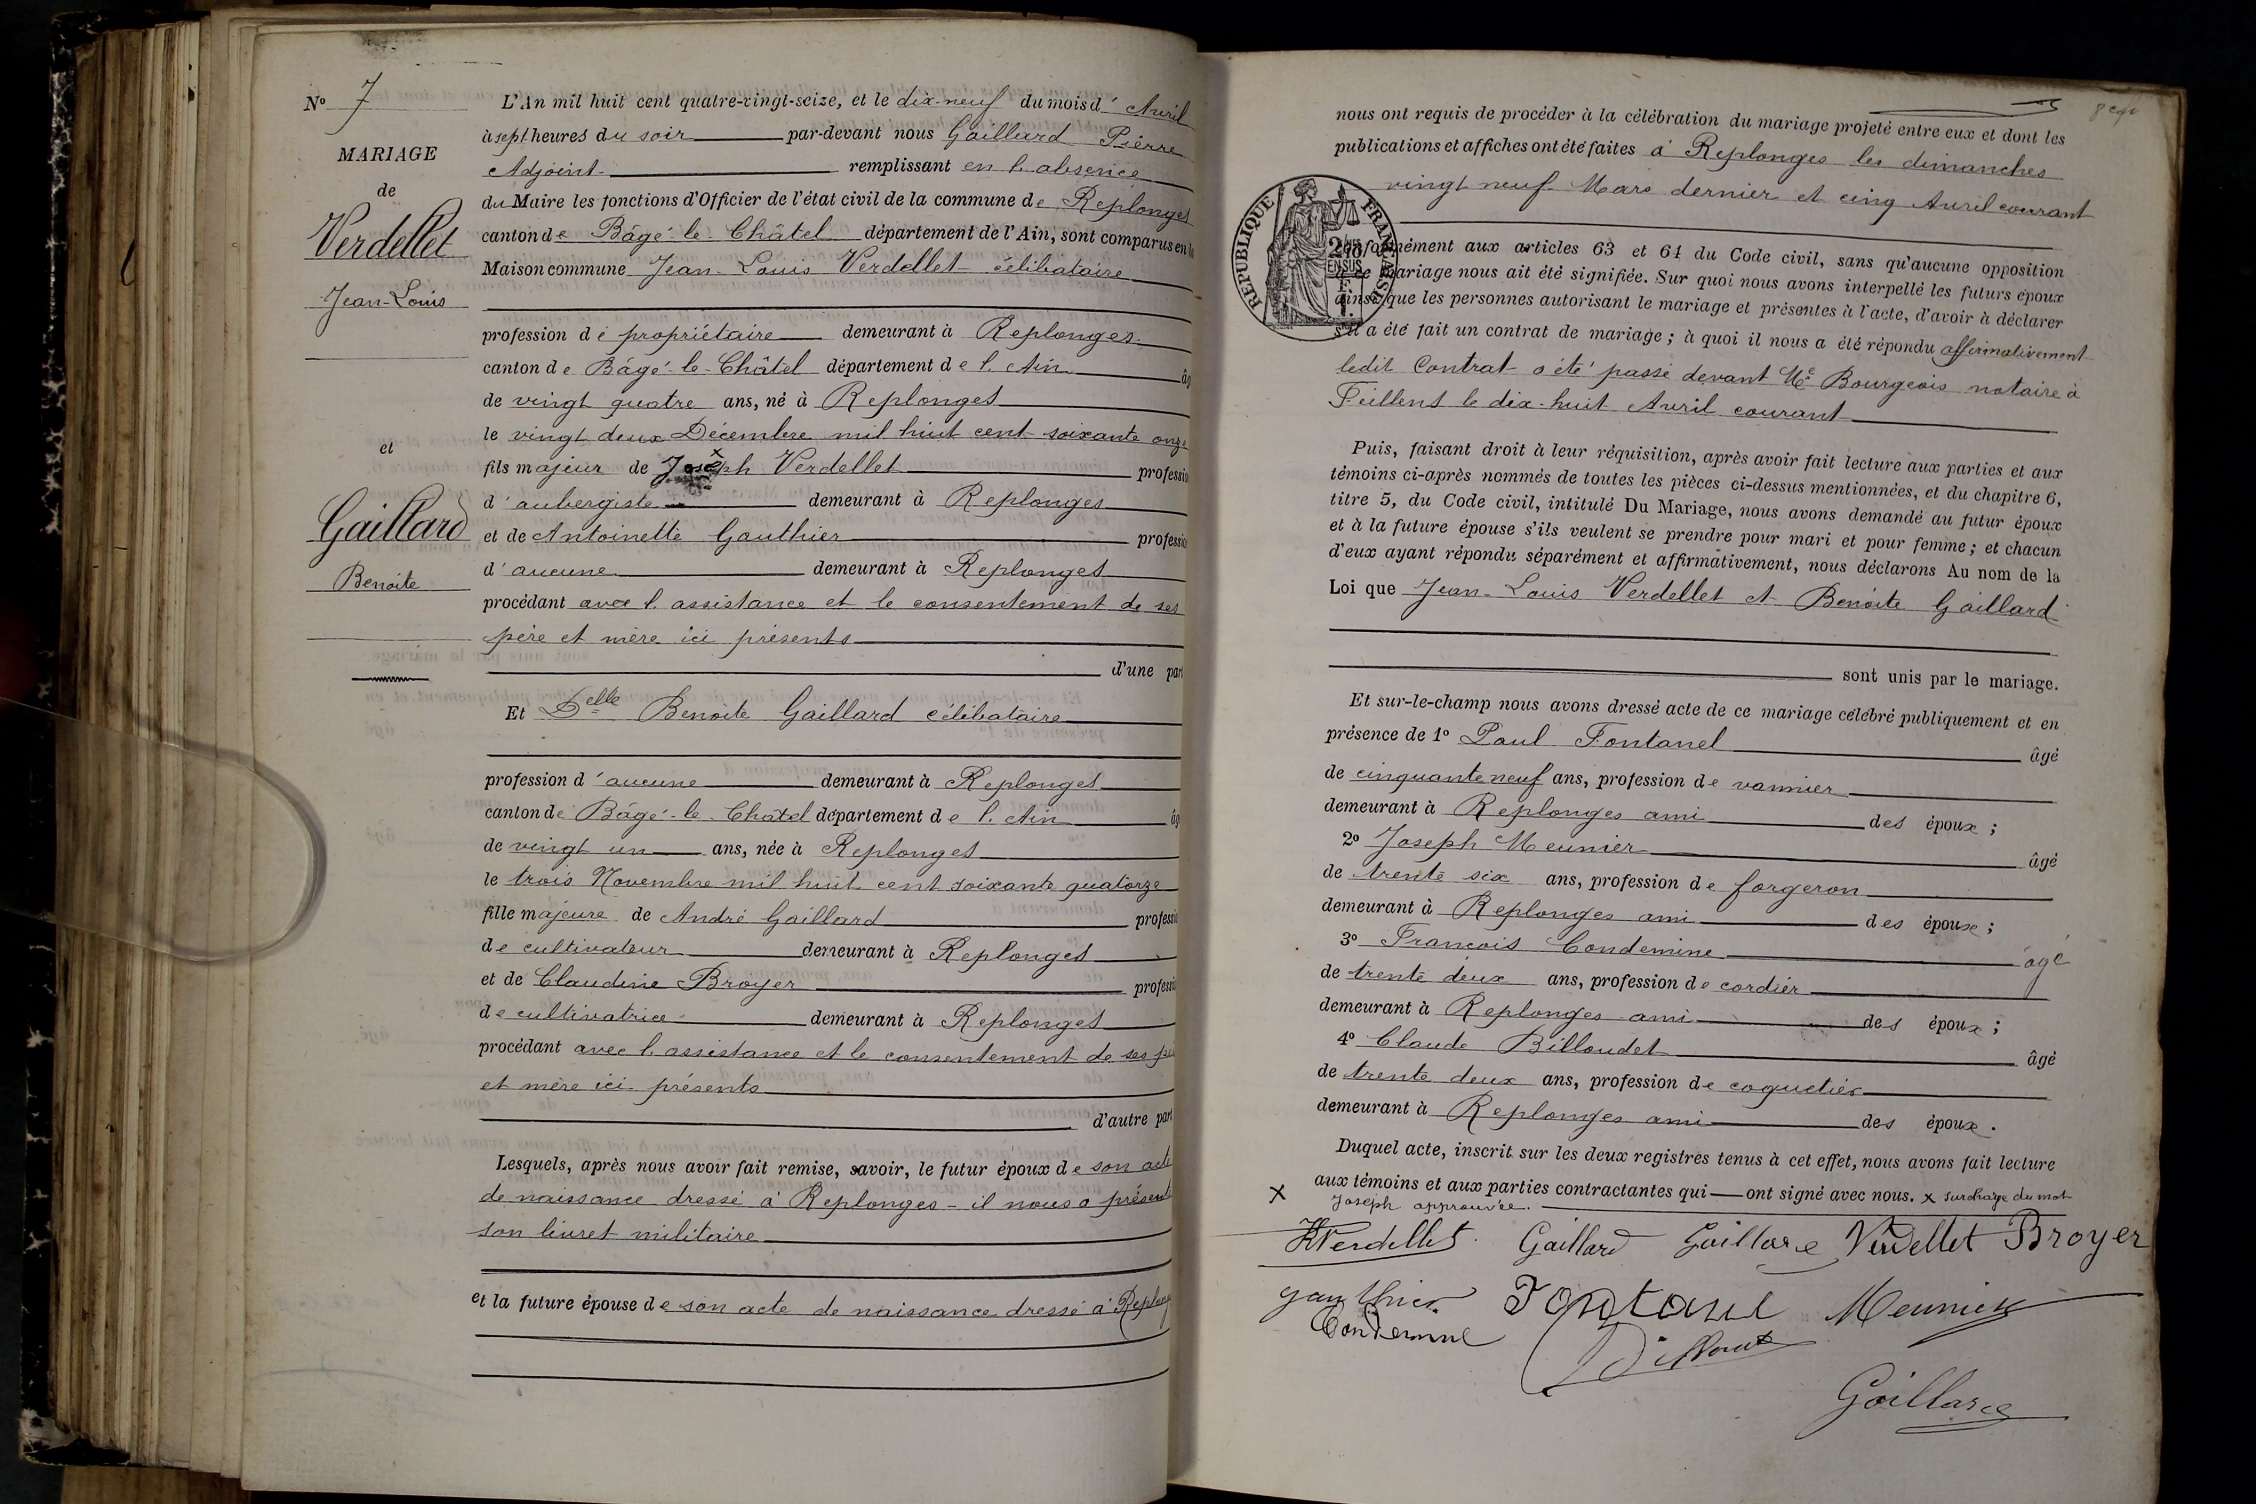 Nº 7
MARIAGE
de
Verdellet
Jean-Louis
et
Gaillard
Benoite
L'An mil huit cent quatre-vingt-seize, et le dix-neuf du mois d'Avril
à sept heures du soir par-devant nous Gaillard Pierre
Adjoint remplissant en l'absence
du Maire les fonctions d'Officier de l'état civil de la commune de Replonges
canton de Bâgé-le-Châtel département de l'Ain, sont comparus en la
Maison commune Jean-Louis Verdellet célibataire
profession de propriétaire demeurant à Replonges
canton de Bâgé-le-Châtel département de l'Ain âg
de vingt quatre ans, né à Replonges
le vingt deux Décembre mil huit cent soixante onze
fils majeur de Joseph x Verdellet professio
d'aubergiste demeurant à Replonges
et de Antoinette Gauthier professio
d'aucune demeurant à Replonges
procédant avec l'assistance et le consentement de ses
père et mère ici présents
d'une part
Et Delle Benoite Gaillard célibataire
profession d'aucune demeurant à Replonges
canton de Bâgé-le-Châtel département de l'Ain âg
de vingt un ans, née à Replonges
le trois Novembre mil huit cent soixante quatorze
fille majeure de André Gaillard professio
de cultivateur demeurant à Replonges
et de Claudine Broyer professio
de cultivatrice demeurant à Replonges
procédant avec l'assistance et le consentement de ses père
et mère ici présents
d'autre part
Lesquels, après nous avoir fait remise, savoir, le futur époux de son acte
de naissance dressé à Replonges - il nous a présenté
son livret militaire
et la future épouse de son acte de naissance dressé à Replong
nous ont requis de procéder à la célébration du mariage projeté entre eux et dont les
publications et affiches ont été faites à Replonges les dimanches
vingt neuf Mars dernier et cinq Avril courant
RÉPUBLIQUE FRANÇAISE
conformément aux articles 63 et 64 du Code civil, sans qu'aucune opposition
à ce mariage nous ait été signifiée. Sur quoi nous avons interpellé les futurs époux
ainsi que les personnes autorisant le mariage et présentes à l'acte, d'avoir à déclarer
s'il a été fait un contrat de mariage ; à quoi il nous a été répondu affirmativement
ledit Contrat a été passé devant Me Bourgeois notaire à
Feillens le dix-huit Avril courant
Puis, faisant droit à leur réquisition, après avoir fait lecture aux parties et aux
témoins ci-après nommés de toutes les pièces ci-dessus mentionnées, et du chapitre 6,
titre 5, du Code civil, intitulé Du Mariage, nous avons demandé au futur époux
et à la future épouse s'ils veulent se prendre pour mari et pour femme ; et chacun
d'eux ayant répondu séparément et affirmativement, nous déclarons Au nom de la
Loi que Jean-Louis Verdellet et Benoite Gaillard
sont unis par le mariage.
Et sur-le-champ nous avons dressé acte de ce mariage célébré publiquement et en
présence de 1º Paul Fontanel âgé
de cinquante neuf ans, profession de vannier
demeurant à Replonges ami des époux ;
2º Joseph Meunier âgé
de trente six ans, profession de forgeron
demeurant à Replonges ami des époux ;
3º François Condemine âgé
de trente deux ans, profession de cordier
demeurant à Replonges ami des époux ;
4º Claude Billoudet âgé
de trente deux ans, profession de coquetier
demeurant à Replonges ami des époux.
Duquel acte, inscrit sur les deux registres tenus à cet effet, nous avons fait lecture
aux témoins et aux parties contractantes qui ont signé avec nous. x surcharge du mot
x Joseph approuvée.
Verdellet Gaillard Gaillard Verdellet Broyer
gauthier Fontanel Meunier
Condemine
Gaillard